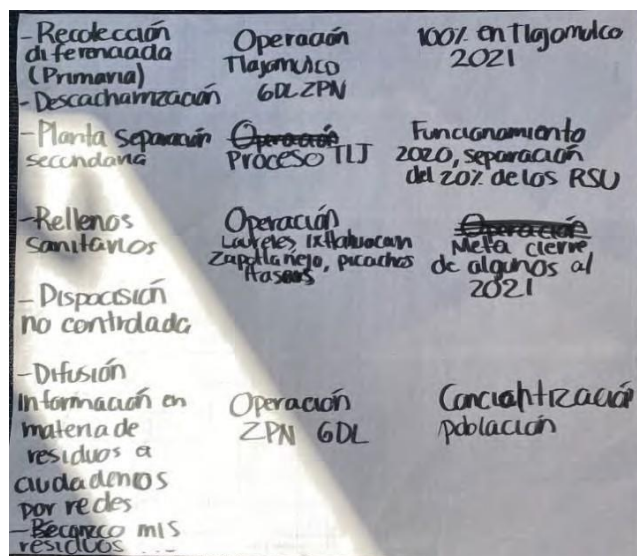 -Recolección diferenciada (Primaria)
-Descacharrización
Operación
Tlajomulco
GDL ZPN
100% en Tlajomulco
2021
-Planta separación
secundaria
Operación
Proceso TLJ
Funcionamiento
2020, separación
del 20% de los RSU
-Rellenos
sanitarios
Operación
Laureles, Ixtlahuacan
Zapotlanejo, picachos
Operación
Meta cierre
de algunos al
2021
- Disposición
no controlada
-Difusión
Información en
materia de
residuos a
ciudadanos
por redes
-
mis
residuos ...
Operación
ZPN GDL
población